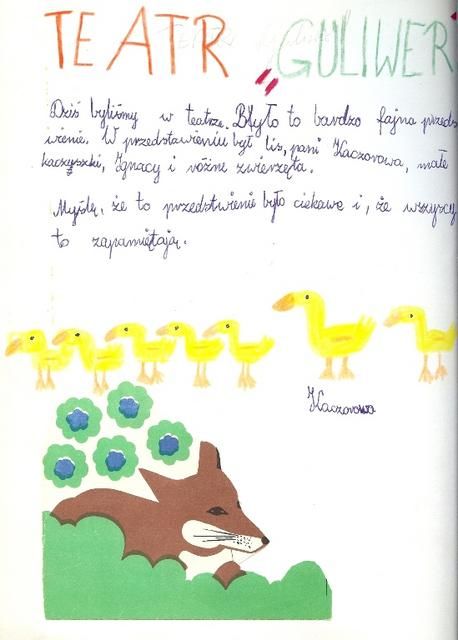 TEATR „GULIWER"
Dziś byliśmy w teatrze. Błyło to bardzo fajna przeds
wienie. W przedstawieniu był lis, pani Kaczorowa, małe
kaczyszki, Ignacy i różne zwierzęta.
Myślę, że to przedstwienie było ciekawe i, że wszyscy
to zapamiętają.
Kaczorowa